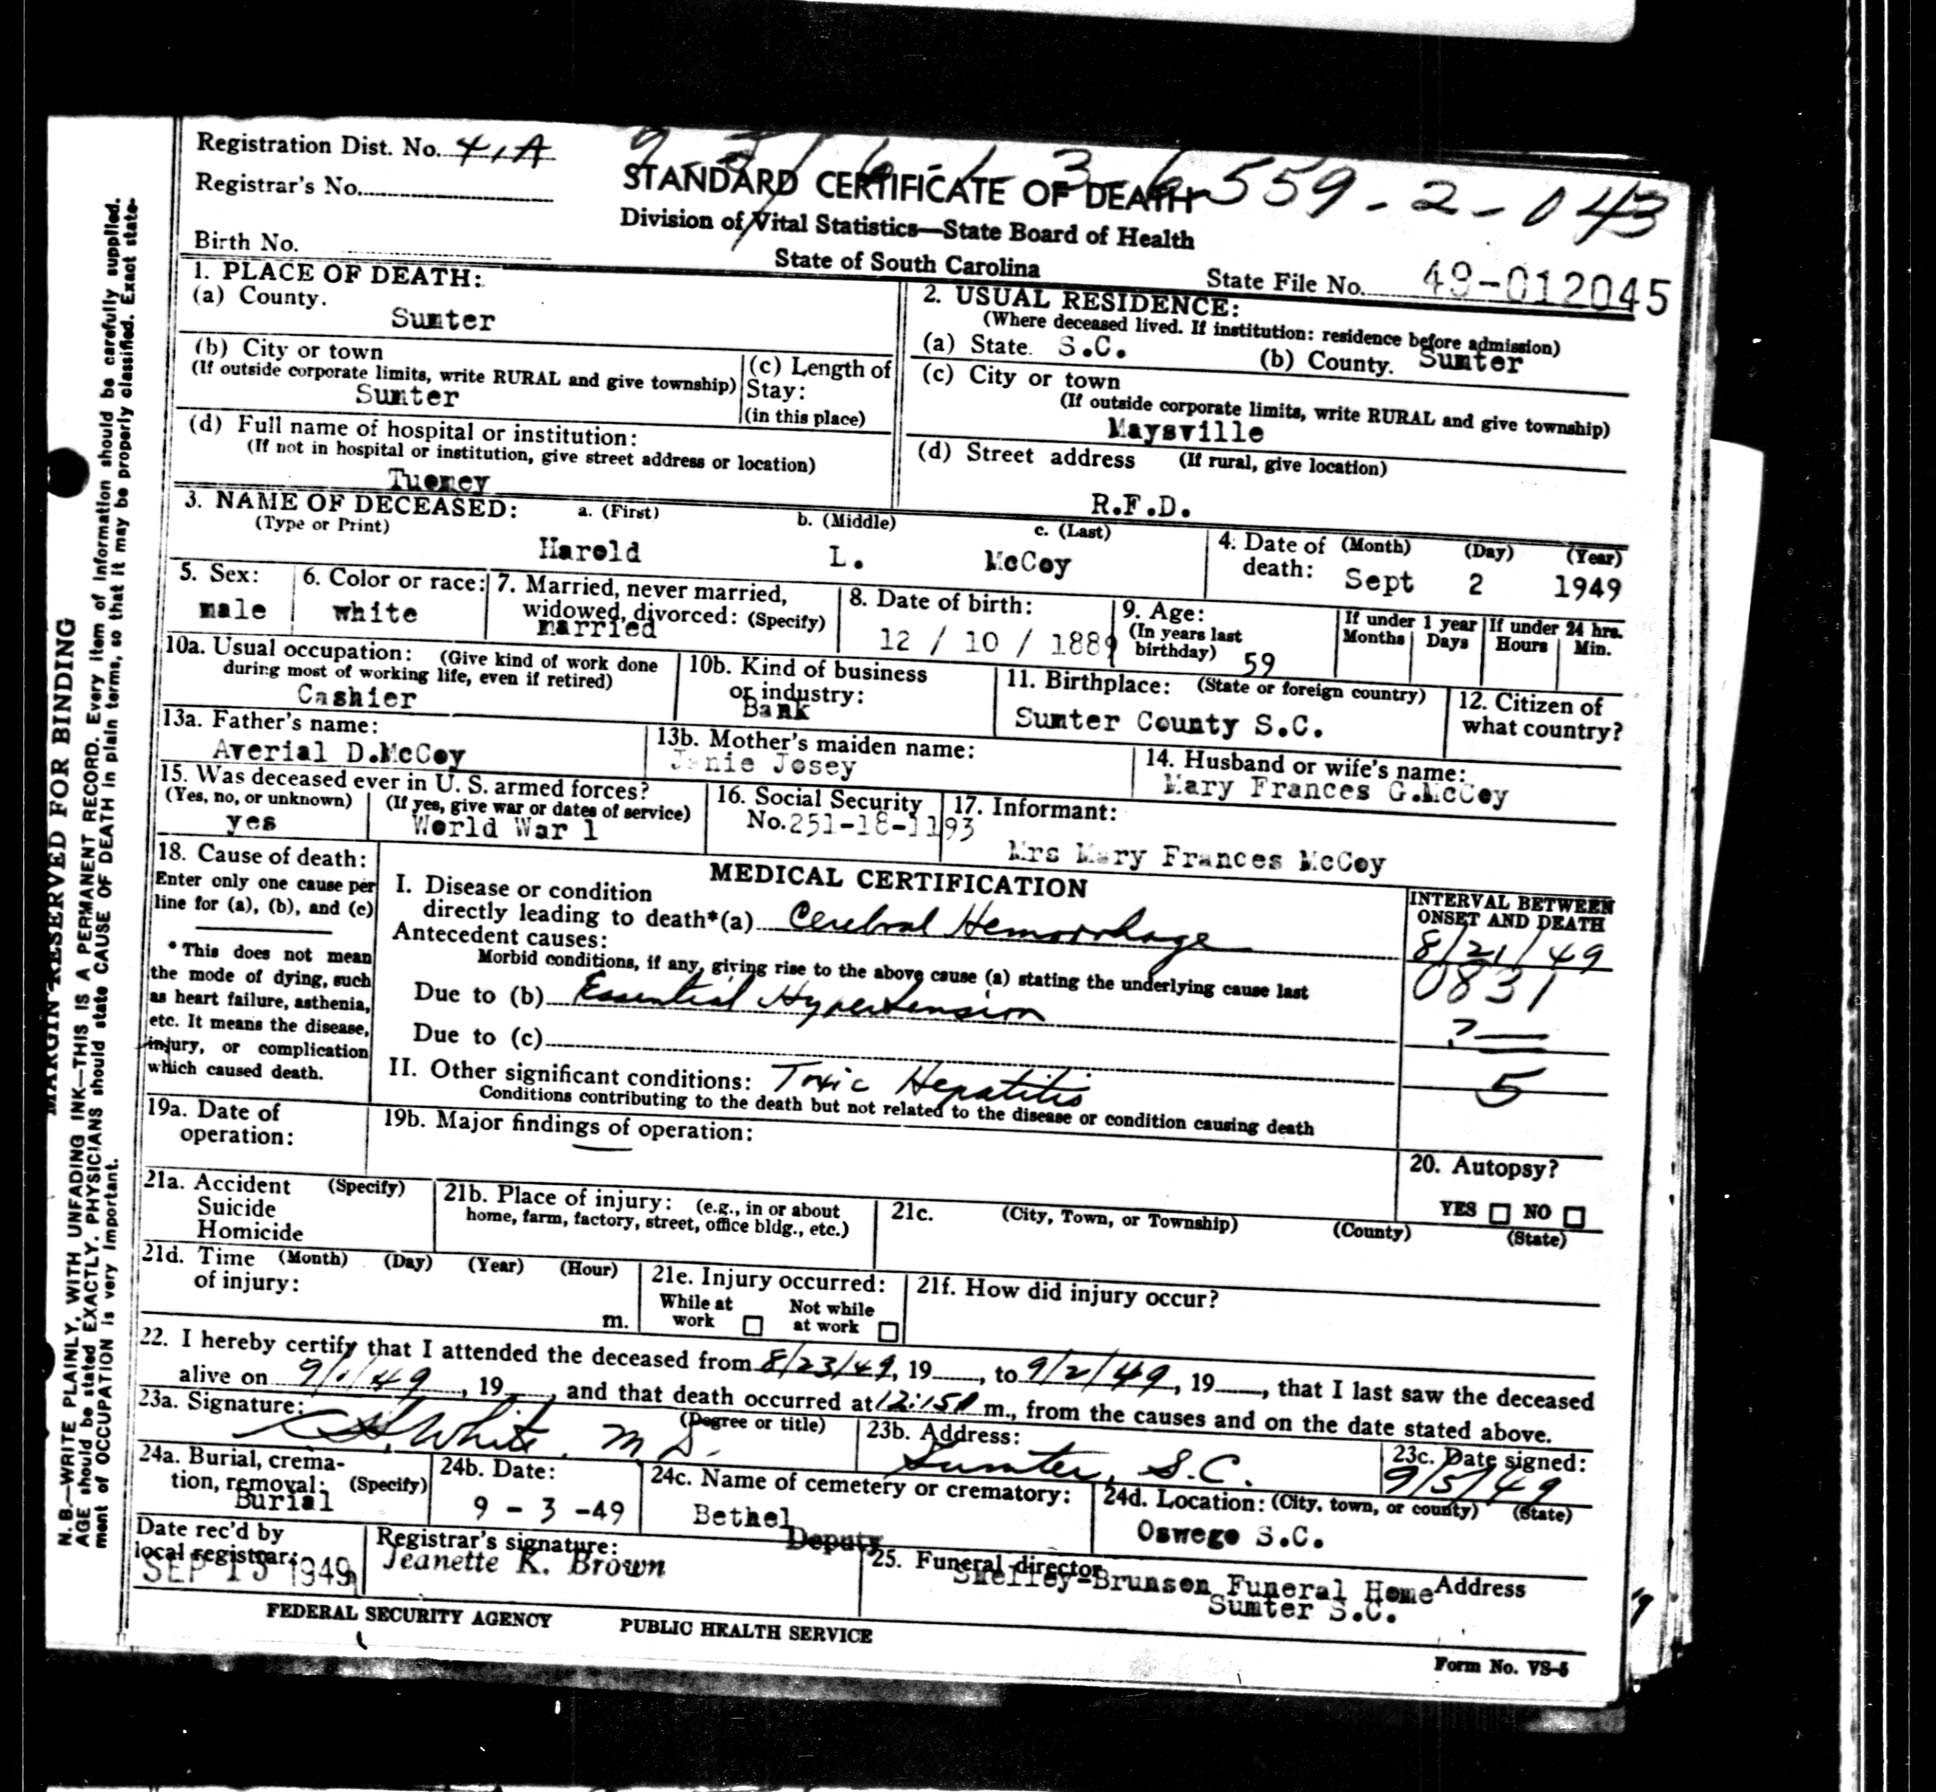 Registration Dist. No. 41A
Registrar's No.
Birth No.
559-2-043
STANDARD CERTIFICATE OF DEATH
Division of Vital Statistics—State Board of Health
State of South Carolina
State File No. 49-012045
1. PLACE OF DEATH:
(a) County.
Sumter
(b) City or town
(If outside corporate limits, write RURAL and give township)
Sumter
(c) Length of
Stay:
(in this place)
(d) Full name of hospital or institution:
(If not in hospital or institution, give street address or location)
Tuomey
2. USUAL RESIDENCE:
(Where deceased lived. If institution: residence before admission)
(a) State. S.C. (b) County. Sumter
(c) City or town
(If outside corporate limits, write RURAL and give township)
Maysville
(d) Street address (If rural, give location)
R.F.D.
3. NAME OF DECEASED: a. (First) b. (Middle) c. (Last)
(Type or Print)
Harold L. McCoy
4. Date of (Month) (Day) (Year)
death: Sept 2 1949
5. Sex:
male
6. Color or race:
white
7. Married, never married,
widowed, divorced: (Specify)
married
8. Date of birth:
12 / 10 / 1889
9. Age:
(In years last
birthday) 59
If under 1 year
Months Days
If under 24 hrs.
Hours Min.
10a. Usual occupation: (Give kind of work done
during most of working life, even if retired)
Cashier
10b. Kind of business
or industry:
Bank
11. Birthplace: (State or foreign country)
Sumter County S.C.
12. Citizen of
what country?
13a. Father's name:
Averial D.McCoy
13b. Mother's maiden name:
Janie Josey
14. Husband or wife's name:
Mary Frances G.McCoy
15. Was deceased ever in U. S. armed forces?
(Yes, no, or unknown) (If yes, give war or dates of service)
yes World War 1
16. Social Security
No. 251-18-1193
17. Informant:
Mrs Mary Frances McCoy
18. Cause of death:
Enter only one cause per
line for (a), (b), and (c)
* This does not mean
the mode of dying, such
as heart failure, asthenia,
etc. It means the disease,
injury, or complication
which caused death.
MEDICAL CERTIFICATION
I. Disease or condition
directly leading to death*(a) Cerebral Hemorrhage
Antecedent causes:
Morbid conditions, if any, giving rise to the above cause (a) stating the underlying cause last
Due to (b) Essential Hypertension
Due to (c)
II. Other significant conditions: Toxic Hepatitis
Conditions contributing to the death but not related to the disease or condition causing death
INTERVAL BETWEEN
ONSET AND DEATH
8/21/49
0831
?
5
19a. Date of
operation:
19b. Major findings of operation:
20. Autopsy?
YES NO
21a. Accident (Specify)
Suicide
Homicide
21b. Place of injury: (e.g., in or about
home, farm, factory, street, office bldg., etc.)
21c. (City, Town, or Township) (County) (State)
21d. Time (Month) (Day) (Year) (Hour)
of injury:
m.
21e. Injury occurred:
While at Not while
work at work
21f. How did injury occur?
22. I hereby certify that I attended the deceased from 8/23/49, 19, to 9/2/49, 19, that I last saw the deceased
alive on 9/1/49, 19, and that death occurred at 12:15 m., from the causes and on the date stated above.
23a. Signature: (Degree or title)
White, M.D.
23b. Address:
Sumter, S.C.
23c. Date signed:
9/5/49
24a. Burial, crema-
tion, removal: (Specify)
Burial
24b. Date:
9 - 3 -49
24c. Name of cemetery or crematory:
Bethel
24d. Location: (City, town, or county) (State)
Oswego S.C.
Date rec'd by
local registrar:
SEP 15 1949
Registrar's signature: Deputy
Jeanette K. Brown
25. Funeral director Address
Shelley-Brunson Funeral Home
Sumter S.C.
FEDERAL SECURITY AGENCY PUBLIC HEALTH SERVICE
Form No. VS-5
MARGIN RESERVED FOR BINDING
N. B.—WRITE PLAINLY, WITH UNFADING INK—THIS IS A PERMANENT RECORD. Every item of information should be carefully supplied.
AGE should be stated EXACTLY. PHYSICIANS should state CAUSE OF DEATH in plain terms, so that it may be properly classified. Exact state-
ment of OCCUPATION is very important.